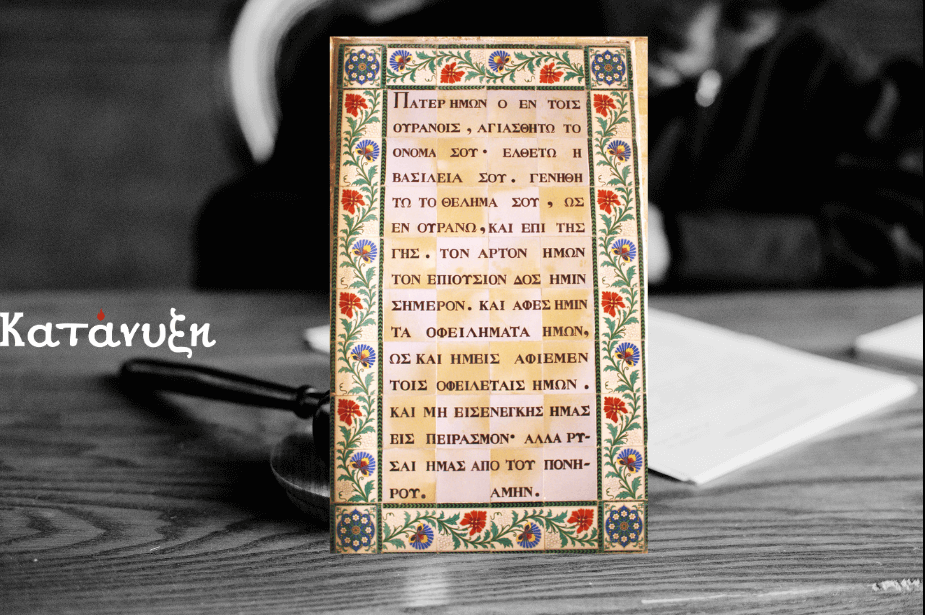 Κατάνυξη
ΠΑΤΕΡ ΗΜΩΝ Ο ΕΝ ΤΟΙΣ
ΟΥΡΑΝΟΙΣ , ΑΓΙΑΣΘΗΤΩ ΤΟ
ΟΝΟΜΑ ΣΟΥ· ΕΛΘΕΤΩ Η
ΒΑΣΙΛΕΙΑ ΣΟΥ. ΓΕΝΗΘΗ
ΤΩ ΤΟ ΘΕΛΗΜΑ ΣΟΥ , ΩΣ
ΕΝ ΟΥΡΑΝΩ, ΚΑΙ ΕΠΙ ΤΗΣ
ΓΗΣ . ΤΟΝ ΑΡΤΟΝ ΗΜΩΝ
ΤΟΝ ΕΠΙΟΥΣΙΟΝ ΔΟΣ ΗΜΙΝ
ΣΗΜΕΡΟΝ. ΚΑΙ ΑΦΕΣ ΗΜΙΝ
ΤΑ ΟΦΕΙΛΗΜΑΤΑ ΗΜΩΝ,
ΩΣ ΚΑΙ ΗΜΕΙΣ ΑΦΙΕΜΕΝ
ΤΟΙΣ ΟΦΕΙΛΕΤΑΙΣ ΗΜΩΝ .
ΚΑΙ ΜΗ ΕΙΣΕΝΕΓΚΗΣ ΗΜΑΣ
ΕΙΣ ΠΕΙΡΑΣΜΟΝ· ΑΛΛΑ ΡΥ-
ΣΑΙ ΗΜΑΣ ΑΠΟ ΤΟΥ ΠΟΝΗ-
ΡΟΥ. ΑΜΗΝ.